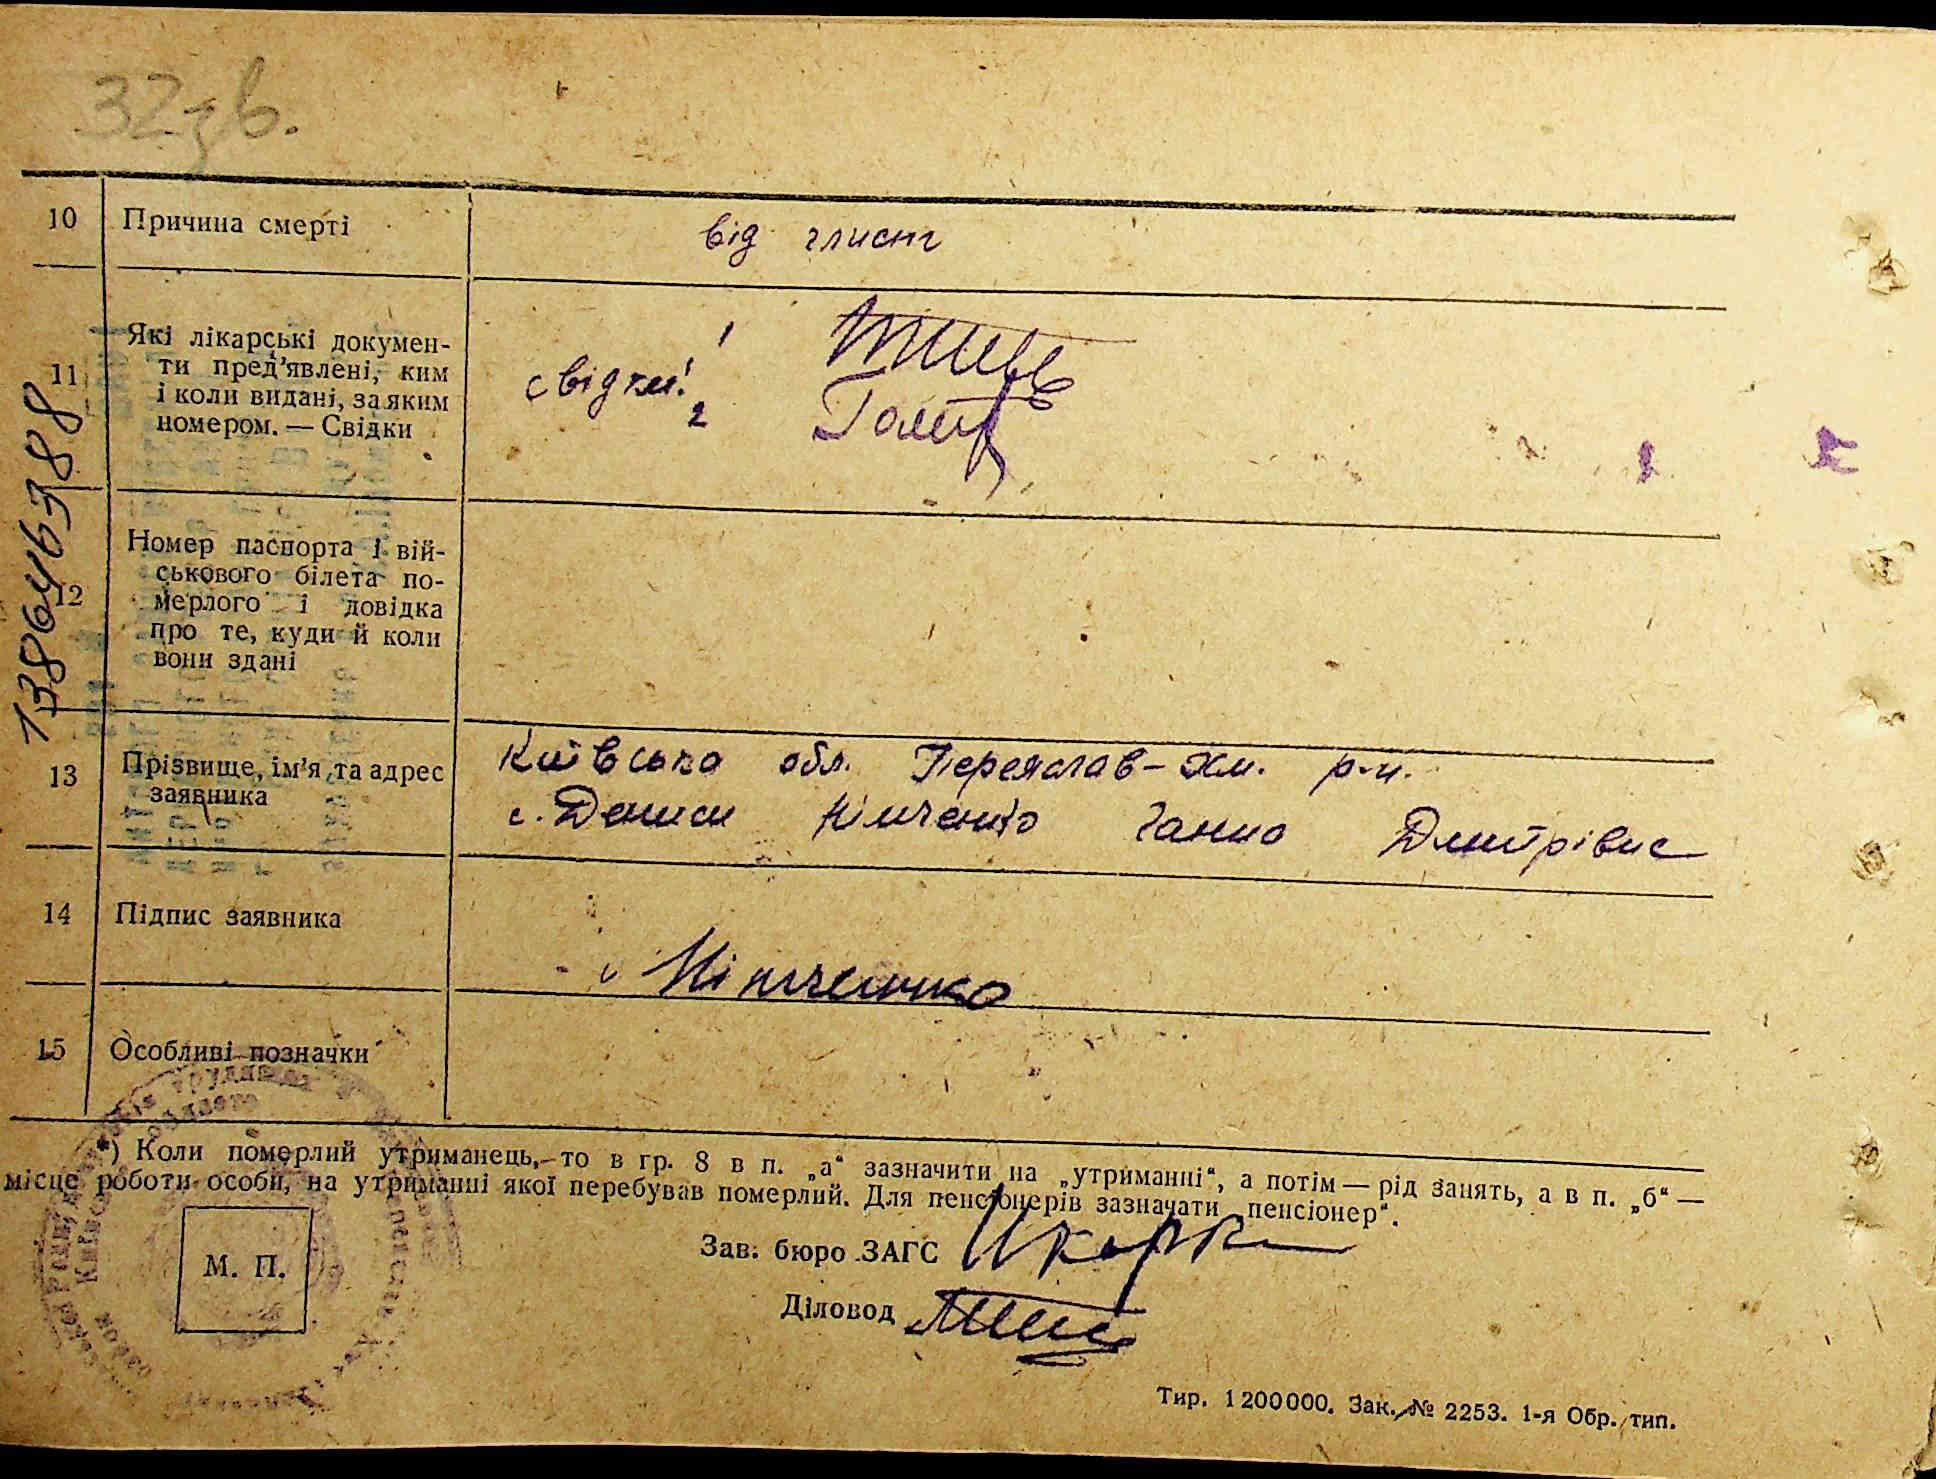 32зв.
10 Причина смерті від глист
11 Які лікарські докумен-
ти пред'явлені, ким
і коли видані, за яким
номером. — Свідки
свідки: 1
2
138646388
12 Номер паспорта і вій-
ськового білета по-
мерлого і довідка
про те, куди й коли
вони здані
13 Прізвище, ім'я та адрес
заявника
Київська обл. Переяслав-Хм. р-н.
с. Дениси Німченко Ганна Дмитрівна
14 Підпис заявника
Німченко
15 Особливі позначки
*) Коли померлий утриманець, то в гр. 8 в п. „а“ зазначити на „утриманні“, а потім — рід занять, а в п. „б“ —
місце роботи особи, на утриманні якої перебував померлий. Для пенсіонерів зазначати „пенсіонер“.
М. П.
Зав. бюро ЗАГС
Діловод
Тир. 1 200 000. Зак. № 2253. 1-я Обр. тип.